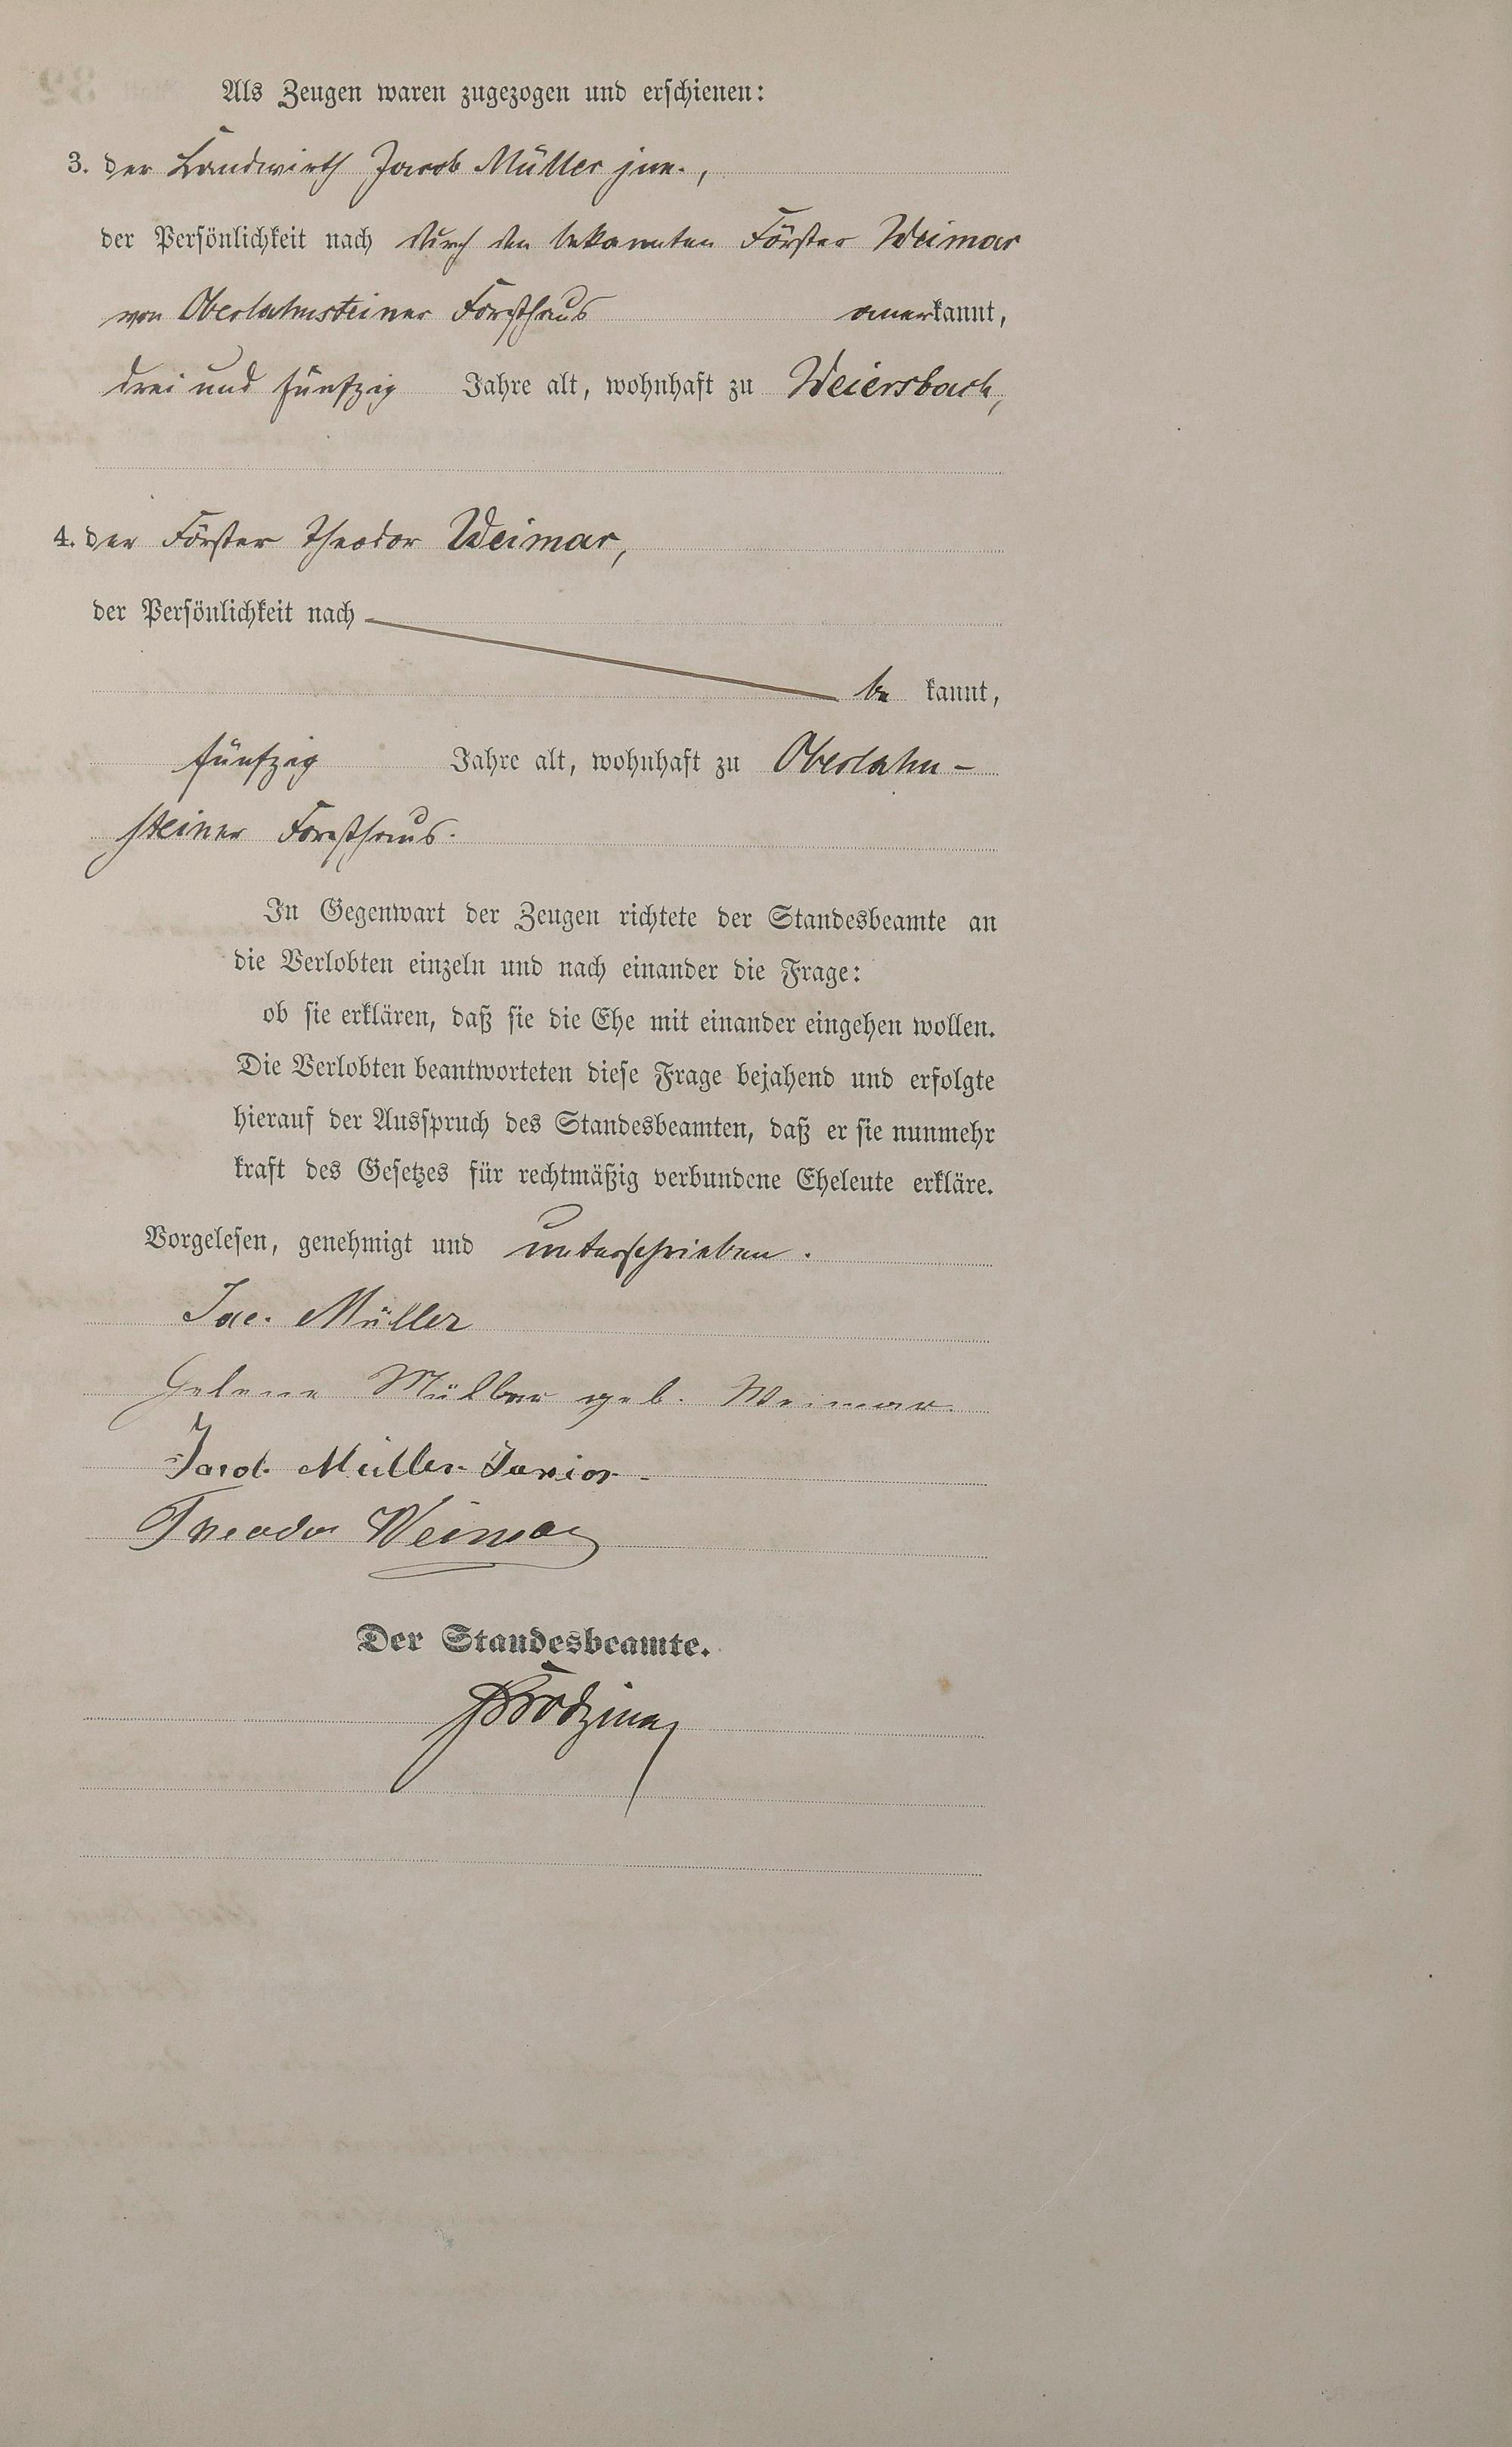 Als Zeugen waren zugezogen und erschienen:
3. der Landwirth Jacob Müller jun.,
der Persönlichkeit nach durch den bekannten Förster Weimar
von Oberlahnsteiner Forsthaus anerkannt,
drei und fünfzig Jahre alt, wohnhaft zu Weiersbach,
4. der Förster Theodor Weimar,
der Persönlichkeit nach
be kannt,
fünfzig Jahre alt, wohnhaft zu Oberlahn-
steiner Forsthaus.
In Gegenwart der Zeugen richtete der Standesbeamte an
die Verlobten einzeln und nach einander die Frage:
ob sie erklären, daß sie die Ehe mit einander eingehen wollen.
Die Verlobten beantworteten diese Frage bejahend und erfolgte
hierauf der Ausspruch des Standesbeamten, daß er sie nunmehr
kraft des Gesetzes für rechtmäßig verbundene Eheleute erkläre.
Vorgelesen, genehmigt und unterschrieben.
Jac. Müller
Helene Müller geb. Weimar.
Jacob Müller Junior
Theodor Weimar
Der Standesbeamte.